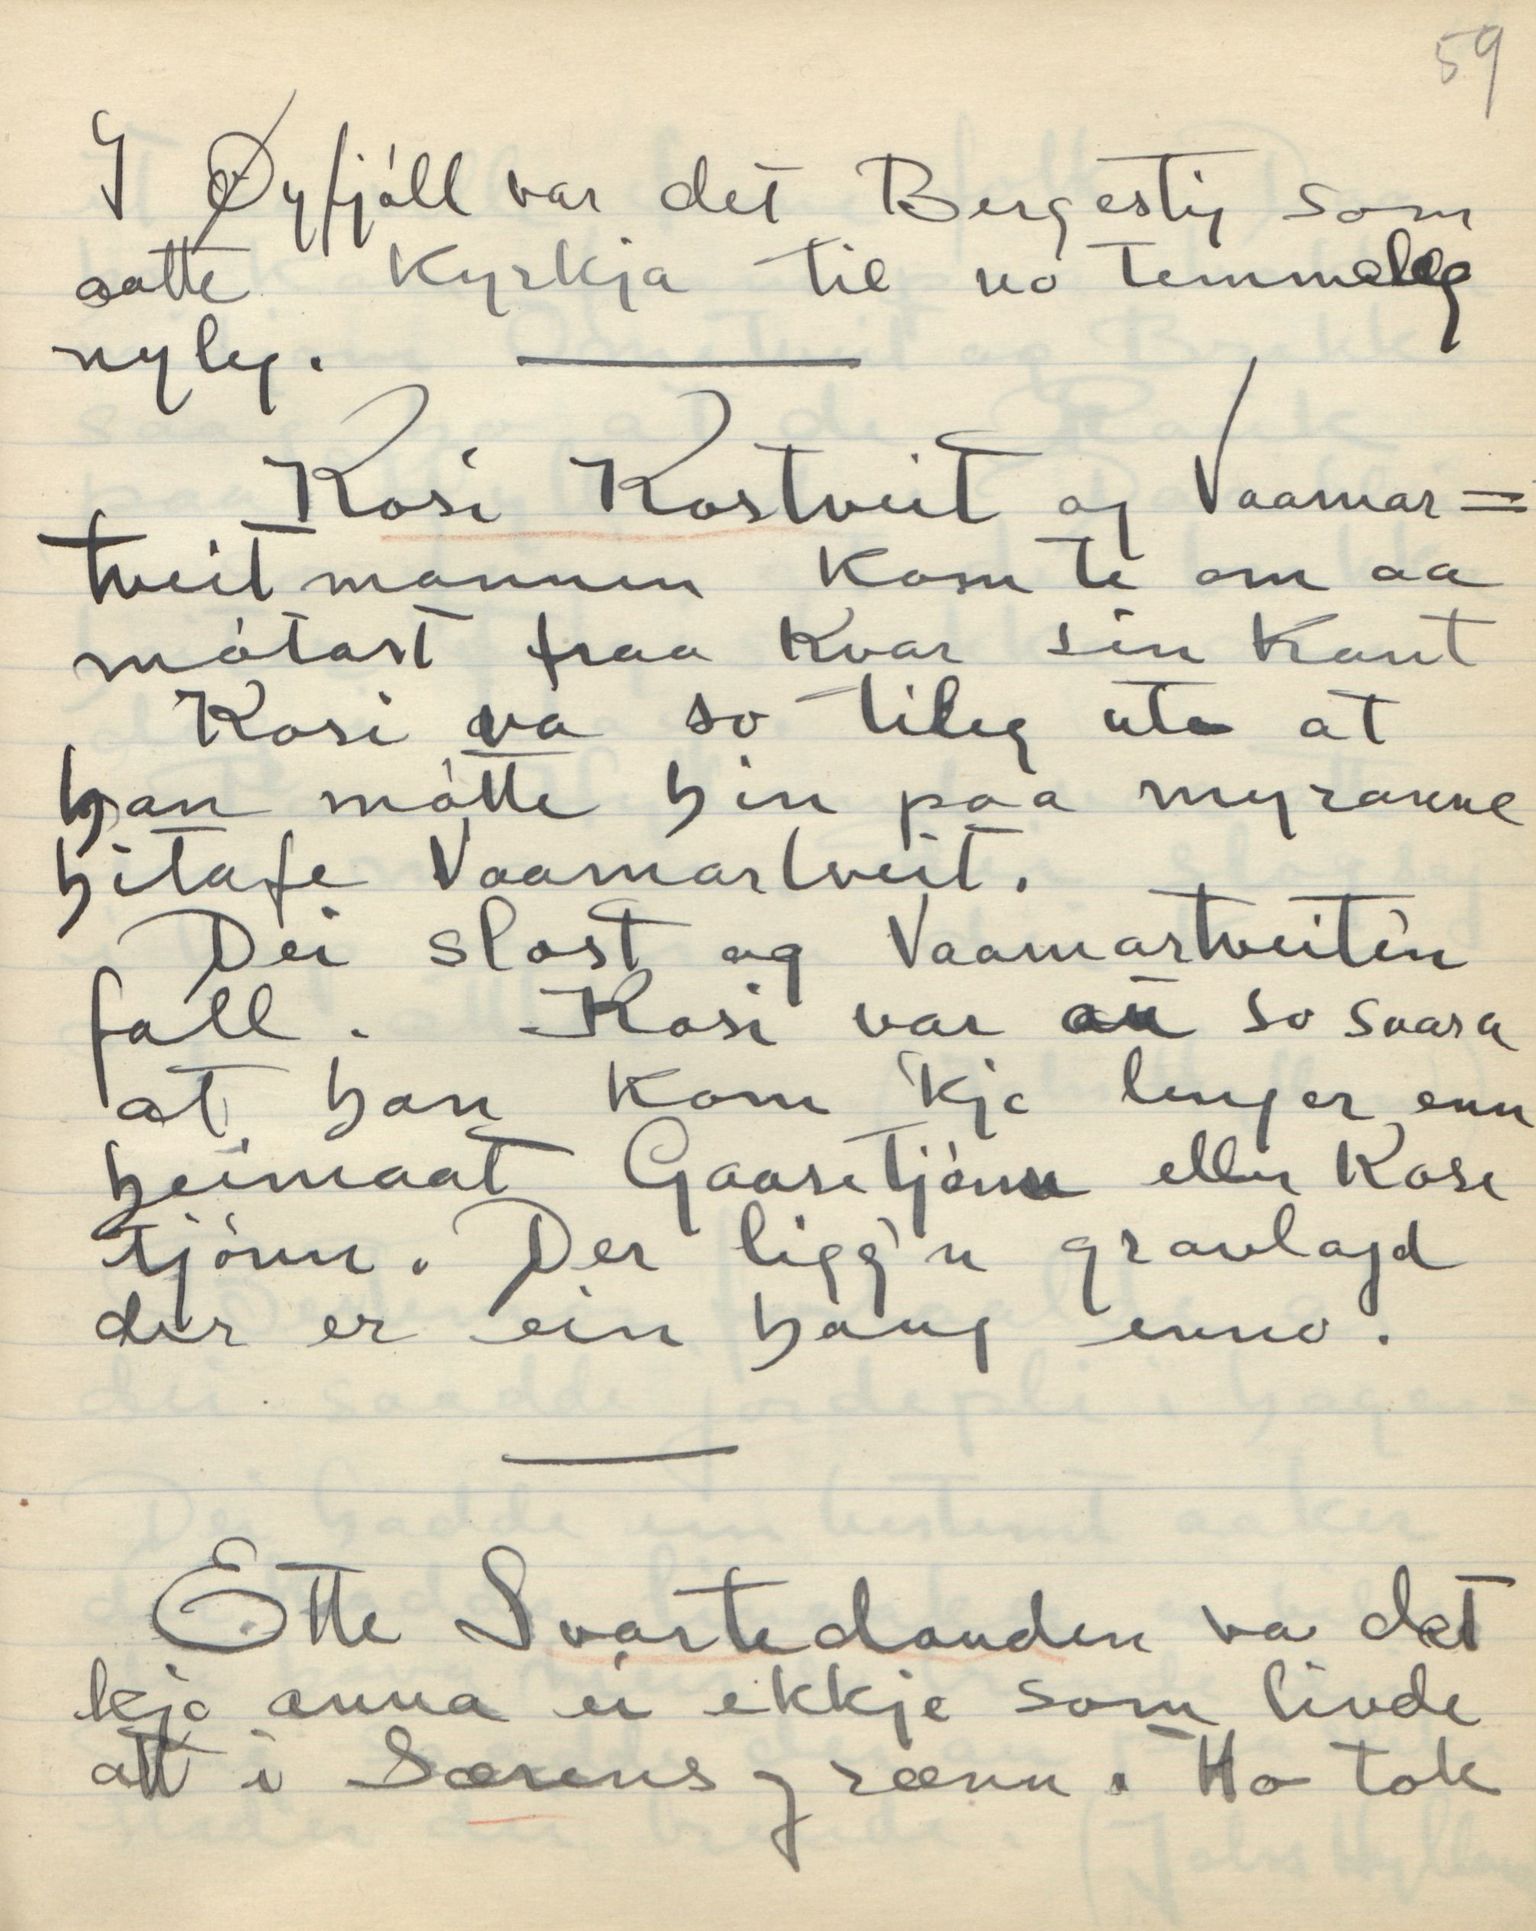 59
I Øyfjóll var det Bergestig som
aatte Kyrkja til no temmeleg
nyleg.
Kosi Kostveit og Vaamar=
tveitmannen kom te om aa
mótast fraa kvar sin kant
Kosi va so tileg ute at
han mótte hin paa myranne
hitafe Vaamartveit.
Dei slost og Vaamartveiten
fall. Kosi var so saara
at han kom 'kje lenger enn
heimaat Gaasetjónn eller Kose
tjónn. Der ligg'n gravlagd
der er ein haug enno.
Ette Svartedauden va det
kje anna ei ekkje som livde
att i Sœrensgrœnn. Ho tok